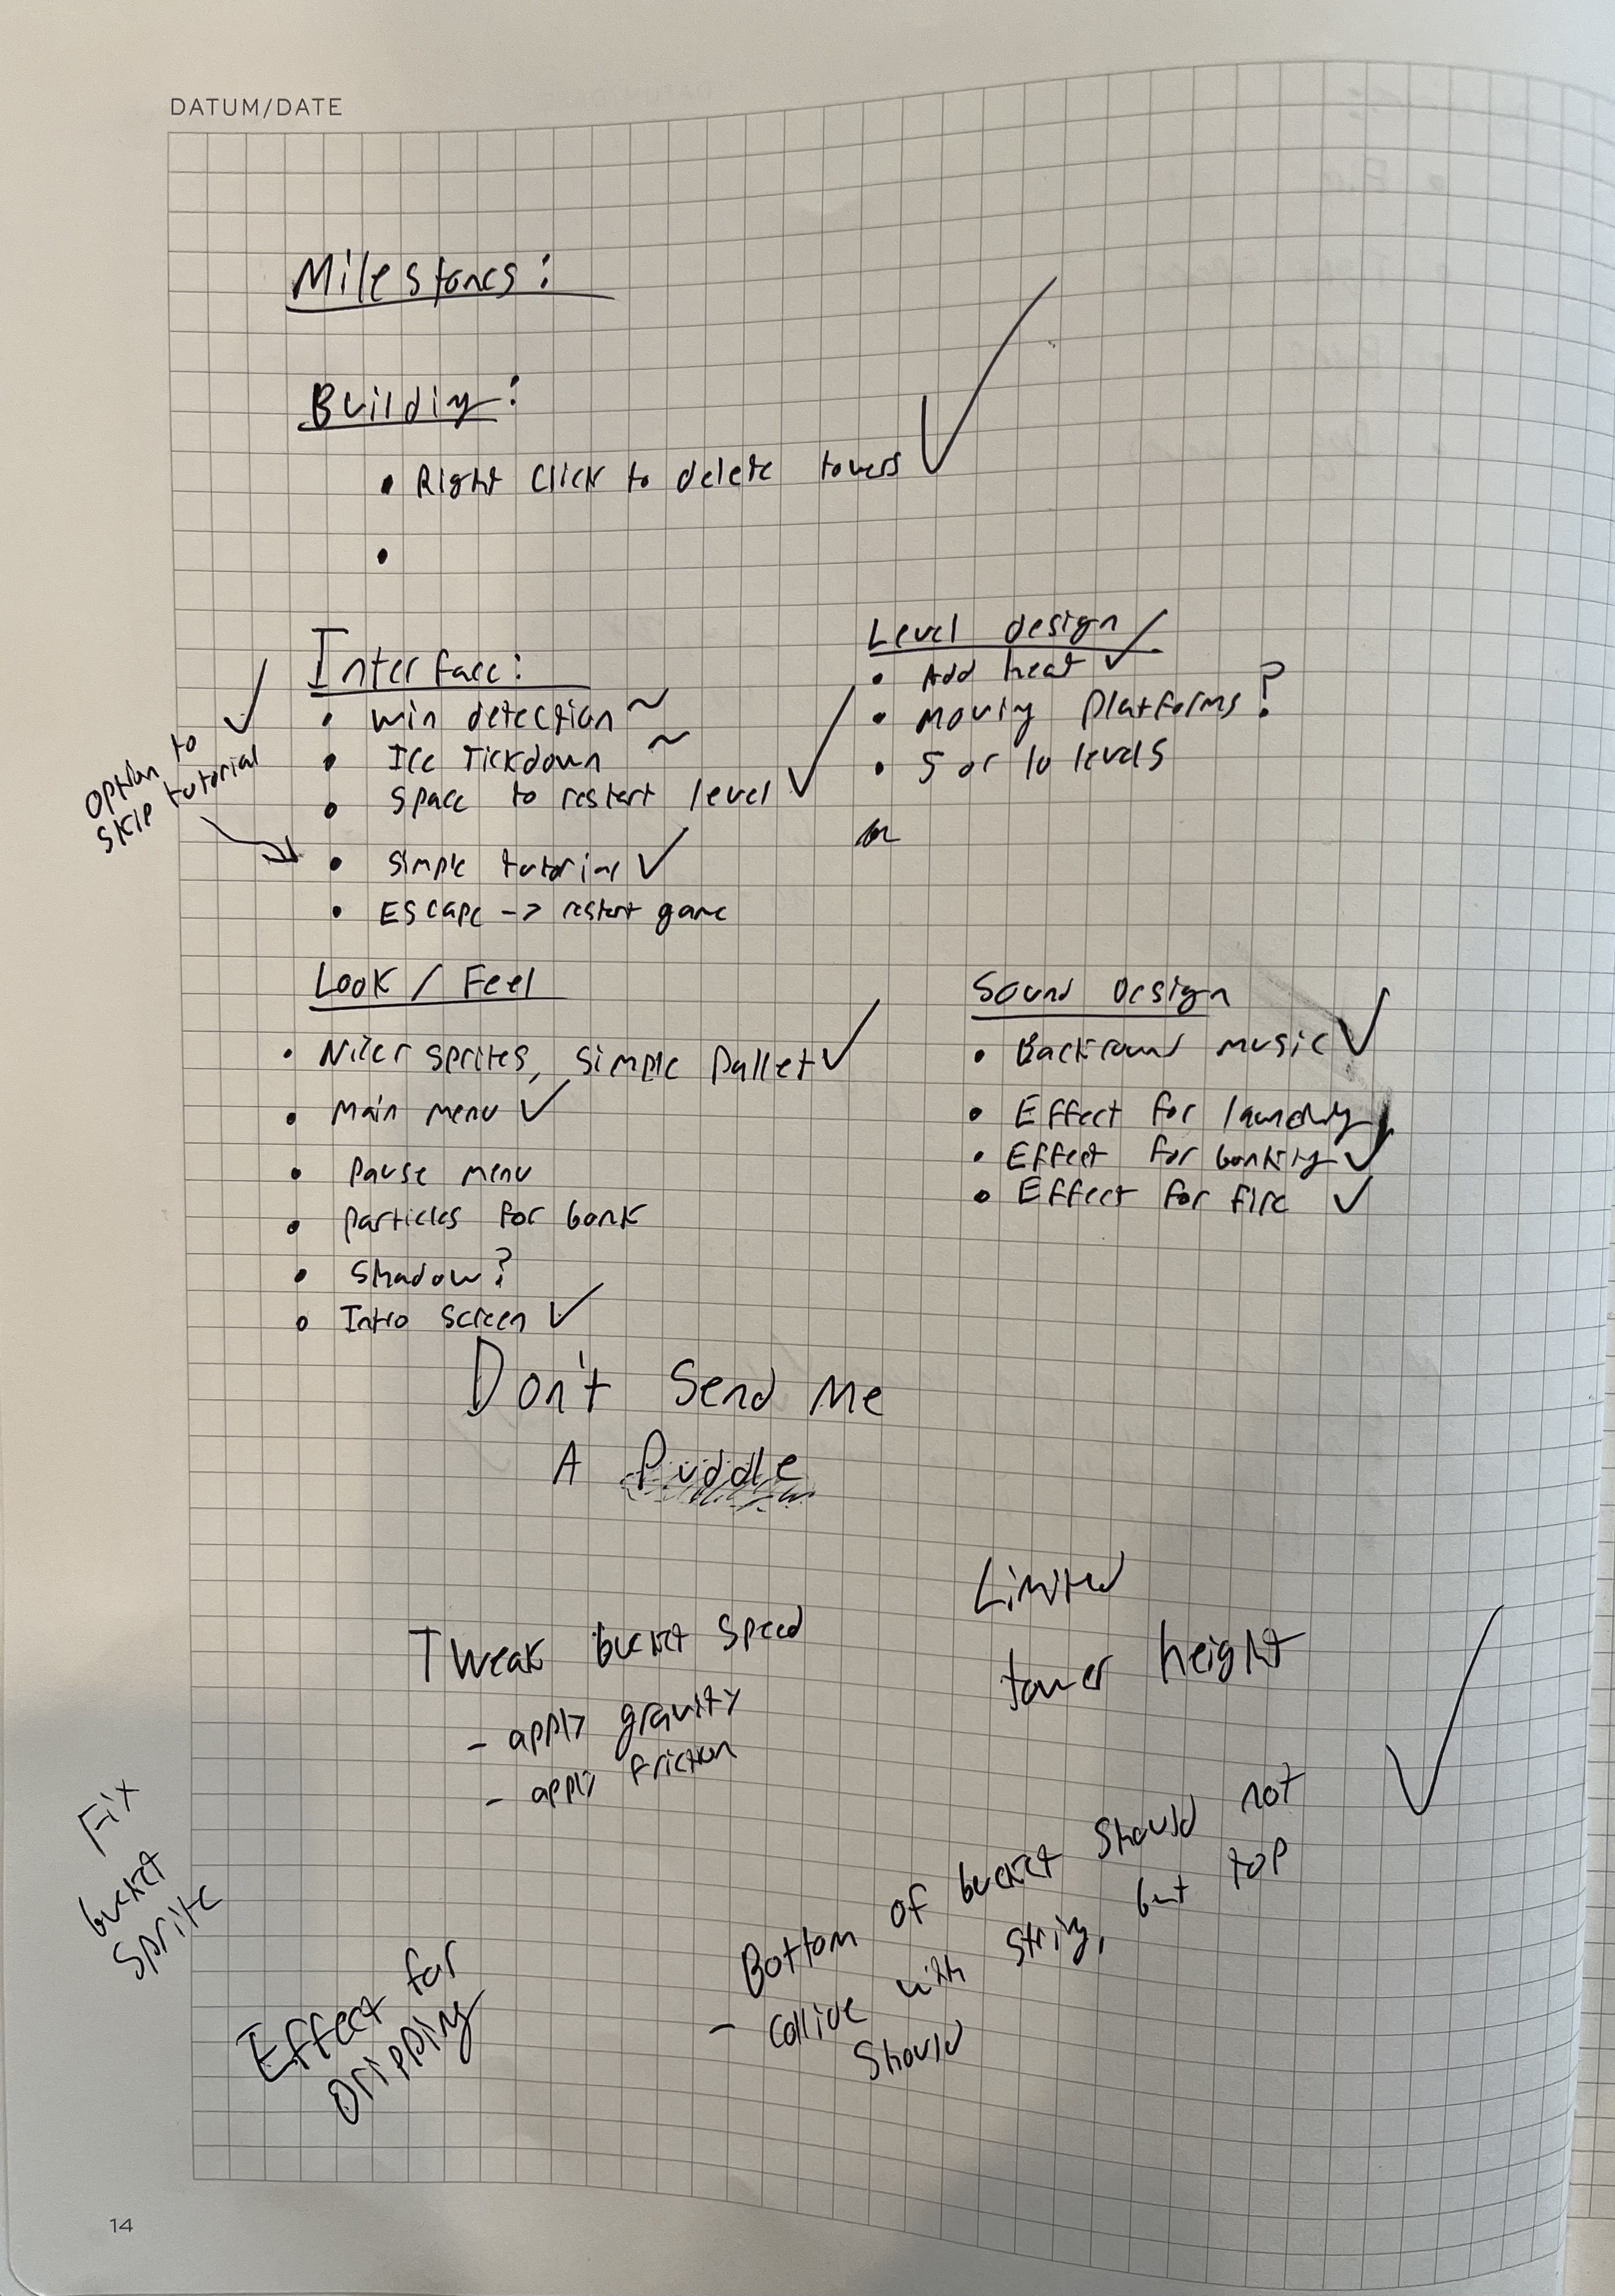 DATUM/DATE
Milestones:
Building:
• Right Click to delete towers ✓
•
Interface:
• win detection ~
• Ice Tickdown ~
• Space to restart level ✓
• Simple tutorial ✓
• Escape -> restart game
Option to
skip tutorial ✓
Level design
• Add heat ✓
• Moving Platforms?
• 5 or 10 levels
Look / Feel
• Nicer sprites, simple pallet ✓
• Main menu ✓
• Pause menu
• Particles for bonk
• Shadow?
• Intro Screen ✓
Sound Design
• Backround music ✓
• Effect for launching
• Effect for bonking ✓
• Effect for fire ✓
Don't Send Me
A Puddle
Tweak bucket speed
- apply gravity
- apply friction
Limited
tower height ✓
Fix
bucket
Sprite
Effect for
Dripping
Bottom of bucket should not
- collide with string, but top
should
14